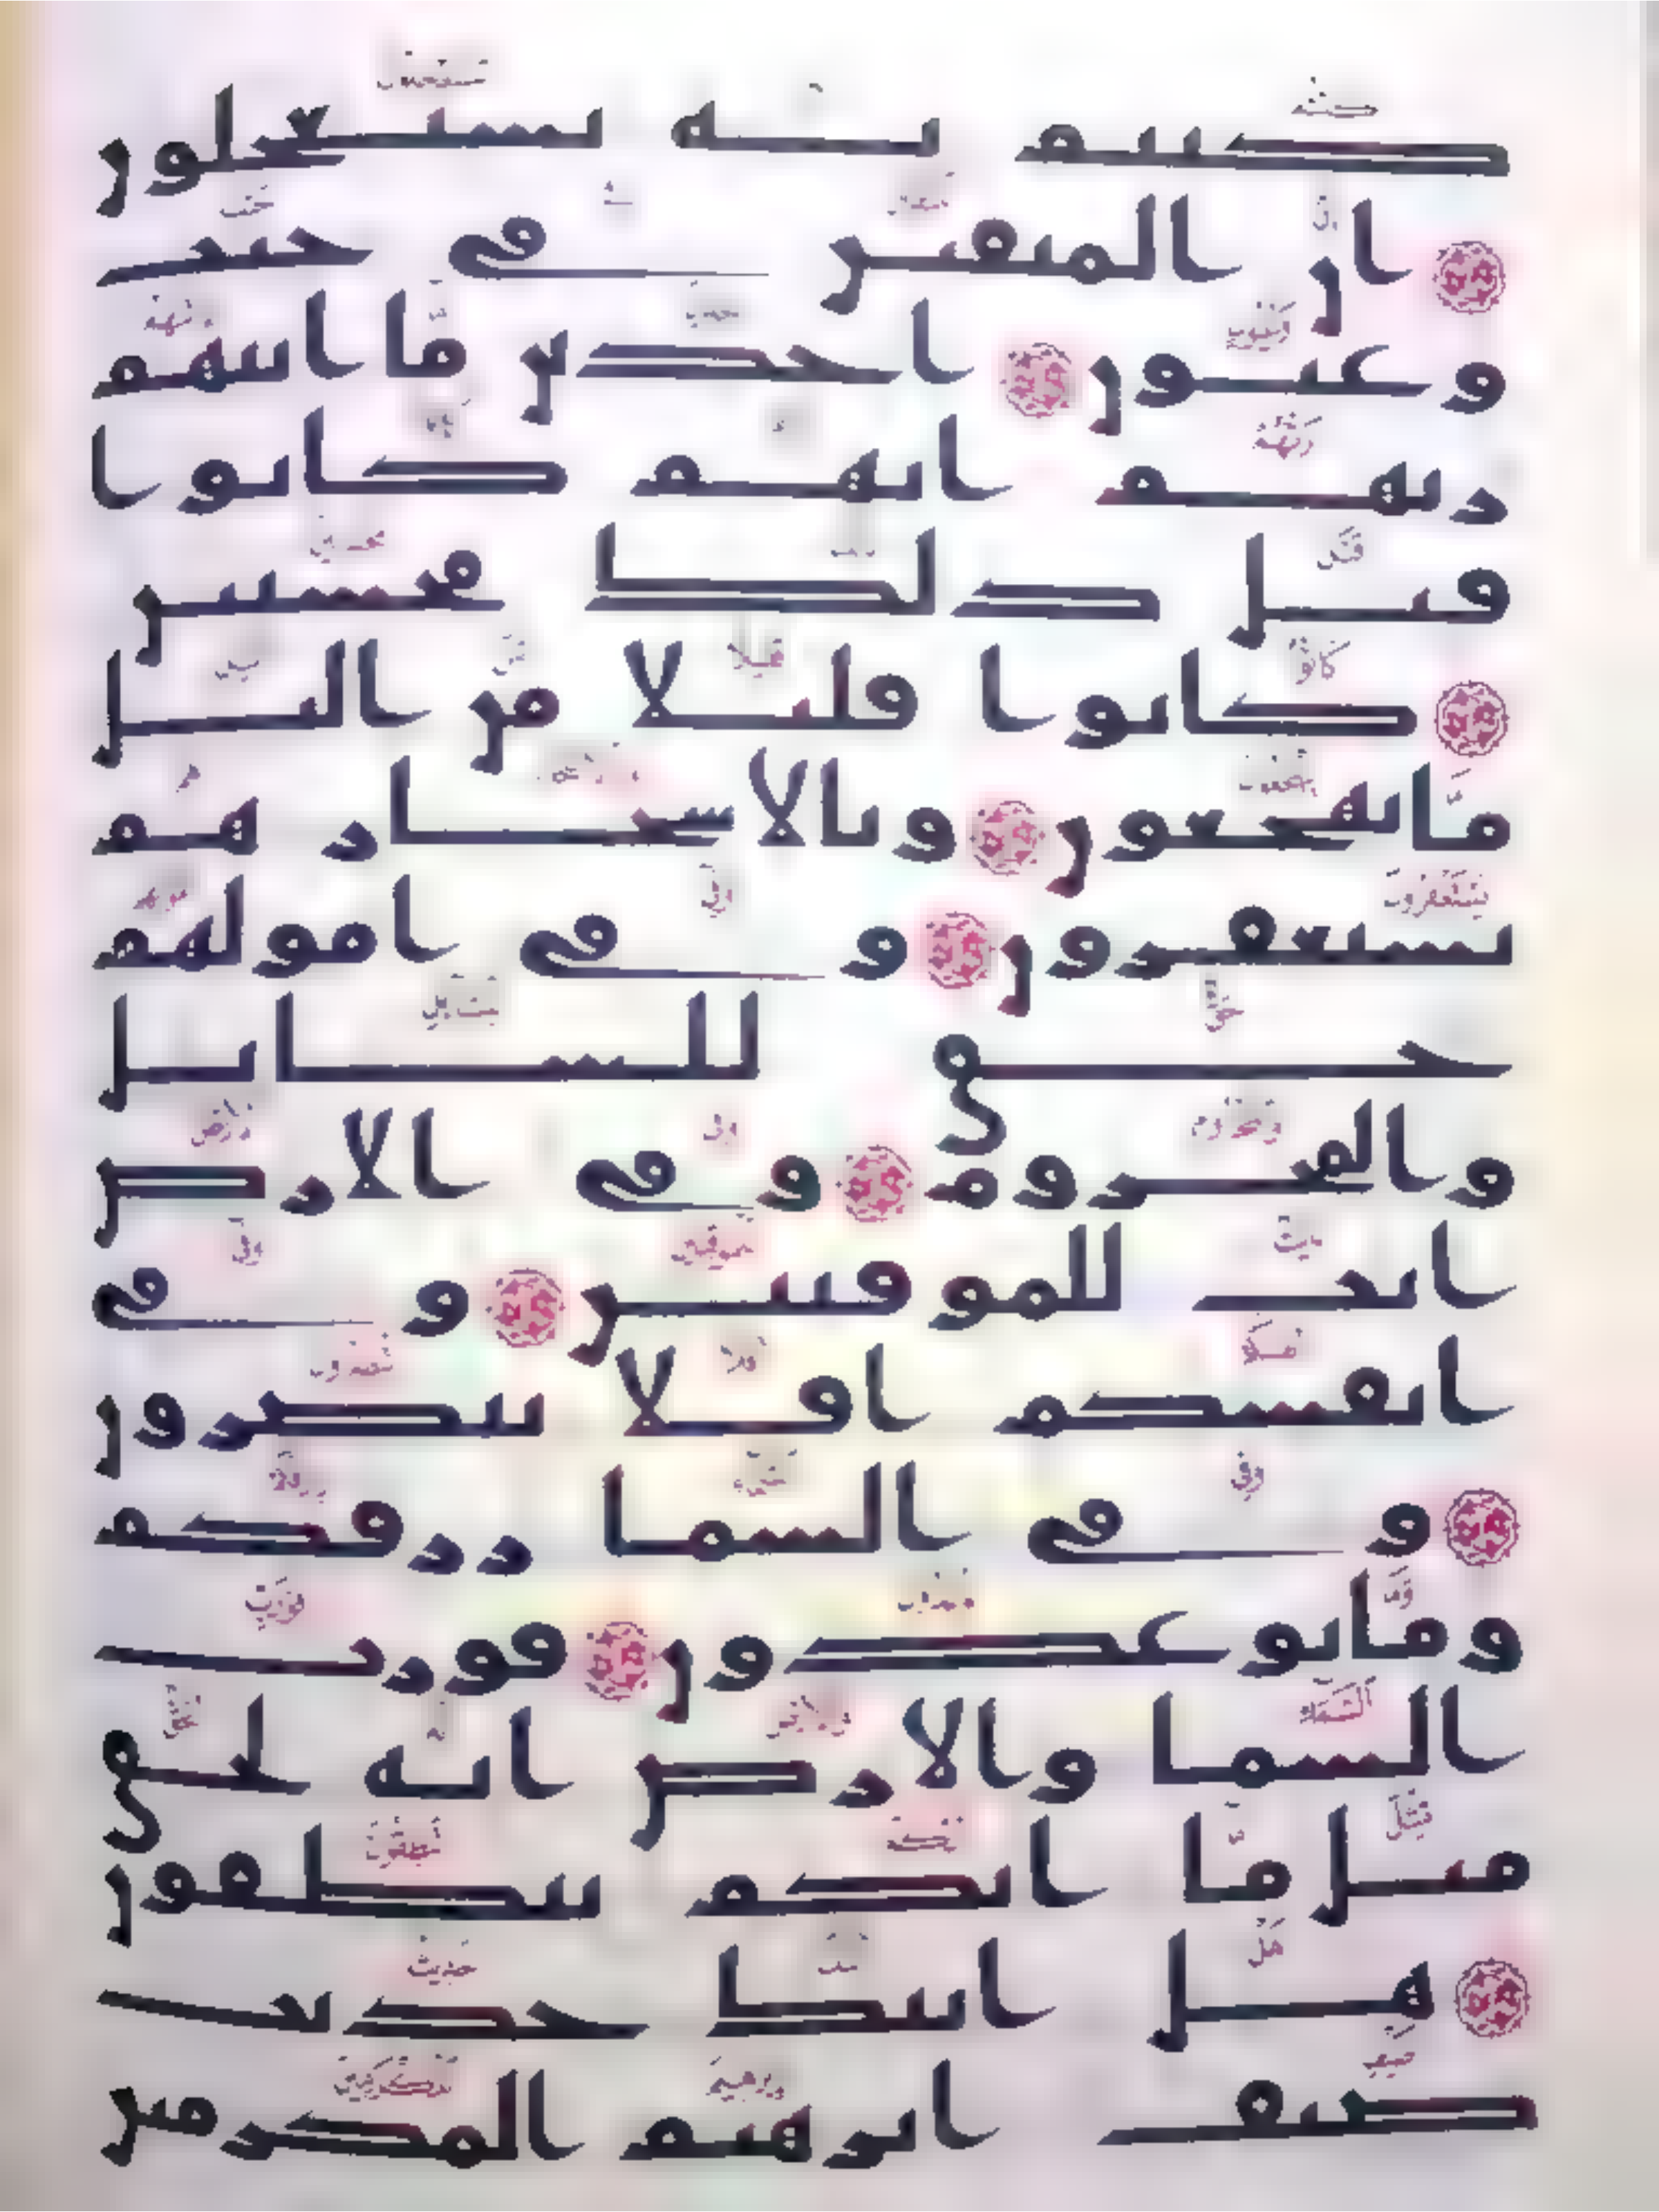 كنتم به تستعجلون
ان المتقين في جنت
وعيون اخذين ما اتىهم
ربهم انهم كانوا
قبل ذلك محسنين
كانوا قليلا من اليل
ما يهجعون وبالاسحار هم
يستغفرون وفي امولهم
حق للسايل
والمحروم وفي الارض
ايت للموقنين وفي
انفسكم افلا تبصرون
وفي السما رزقكم
وما توعدون فورب
السما والارض انه لحق
مثل ما انكم تنطقون
هل اتىك حديث
ضيف ابرهيم المكرمين